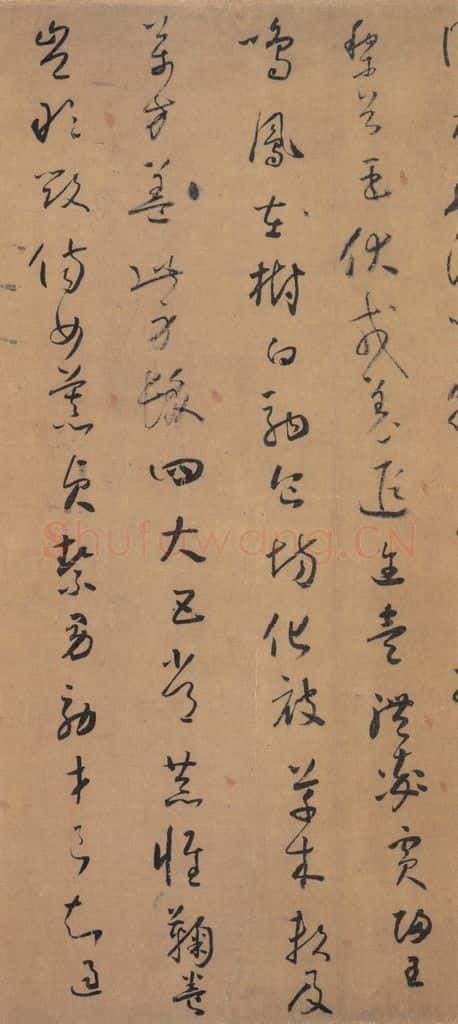 黎首臣伏戎羌遐迩壹體率賓歸王
鳴鳳在樹白駒食場化被草木賴及
萬方蓋此身髮四大五常恭惟鞠養
豈敢毀傷女慕貞絜男效才良知過
Shufawang.CN